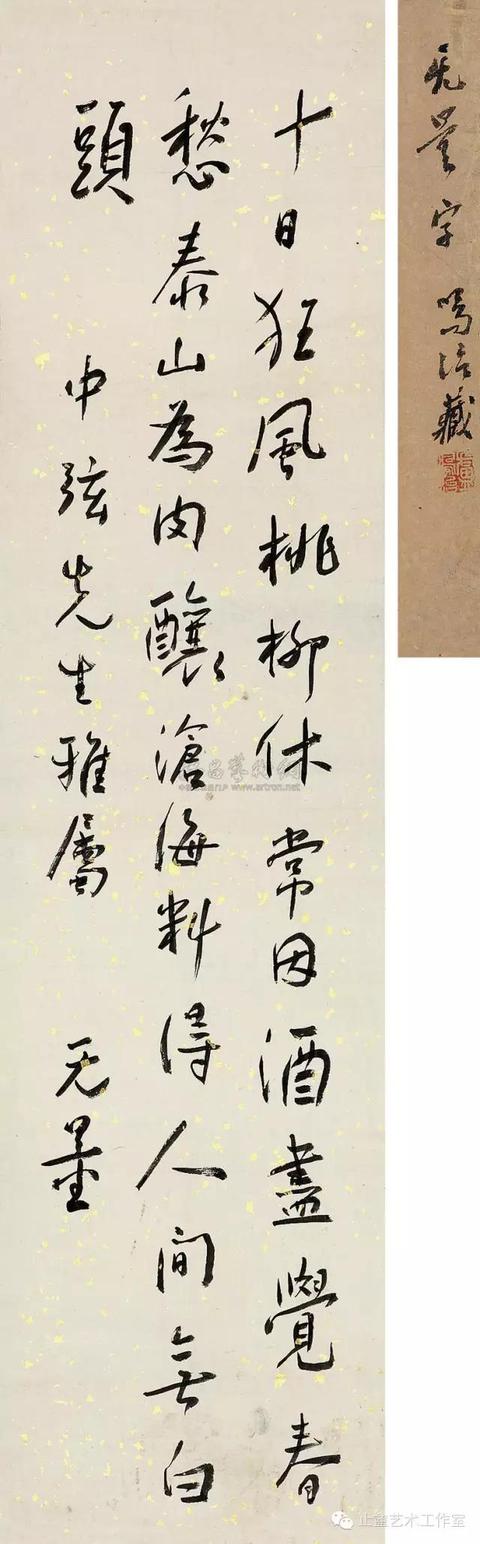 十日狂風桃柳休常因酒盡覺春
愁泰山為肉釀滄海料得人間無白
頭
中弦先生雅屬 无量
无量字
鳴结藏
www.artron.net
止盦艺术工作室